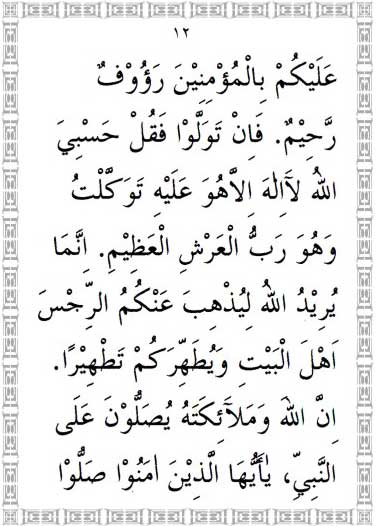 ١٢
عَلَيْكُمْ بِالْمُؤْمِنِيْنَ رَؤُوْفٌ
رَّحِيْمٌ. فَاِنْ تَوَلَّوْا فَقُلْ حَسْبِيَ
اللهُ لَآاِلٰهَ اِلاَّهُوَ عَلَيْهِ تَوَكَّلْتُ
وَهُوَ رَبُّ الْعَرْشِ الْعَظِيْمِ. اِنَّمَا
يُرِيْدُ اللهُ لِيُذْهِبَ عَنْكُمُ الرِّجْسَ
اَهْلَ الْبَيْتِ وَيُطَهِّرَكُمْ تَطْهِيْرًا.
اِنَّ اللهَ وَمَلَآئِكَتَهُ يُصَلُّوْنَ عَلَى
النَّبِيِّ، يٰأَيُّهَا الَّذِيْنَ اٰمَنُوْا صَلُّوْا